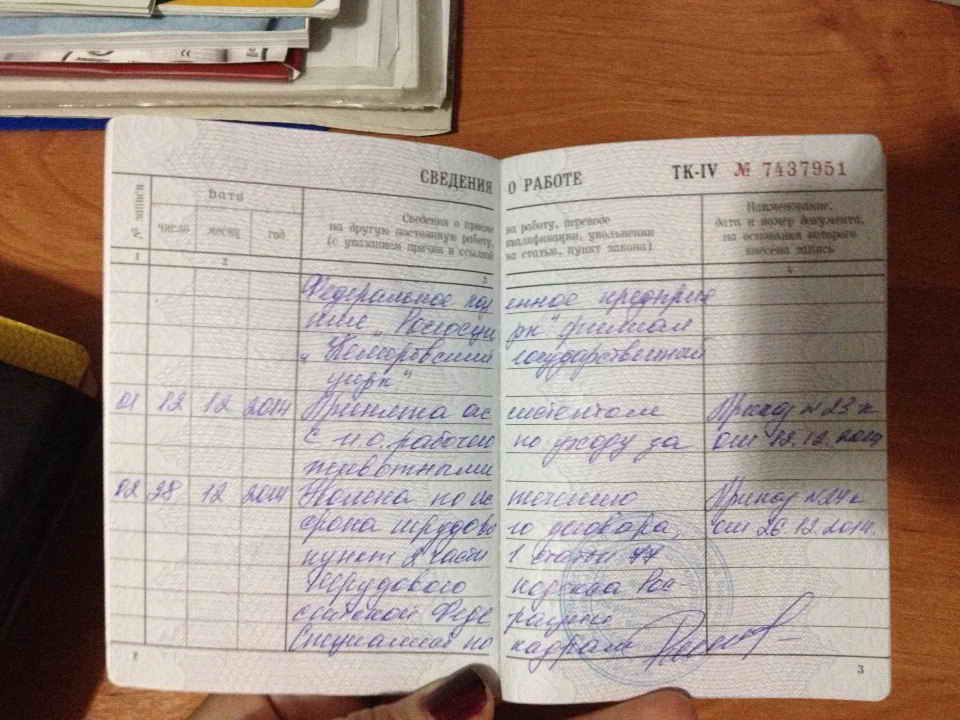 СВЕДЕНИЯ О РАБОТЕ ТК-IV № 7437951
№ записи
Дата
число месяц год
Сведения о приеме на работу, переводе
на другую постоянную работу, квалификации, увольнении
(с указанием причин и ссылкой на статью, пункт закона)
Наименование,
дата и номер документа,
на основании которого
внесена запись
1 2 3 4
Федеральное каз енное предприя
тие „Росгосци рк" филиал
„Кемеровский государственный
цирк"
01 12 12 2014 Принята ас систентом Приказ №23к
с и.о. рабочего по уходу за от 12.12.2014
животными
02 28 12 2014 Уволена по ис течению Приказ №24к
срока трудово го договора, от 26.12.2014.
пункт 2 части 1 статьи 77
Трудового кодекса Рос
сийской Феде рации
Специалист по кадрам
3